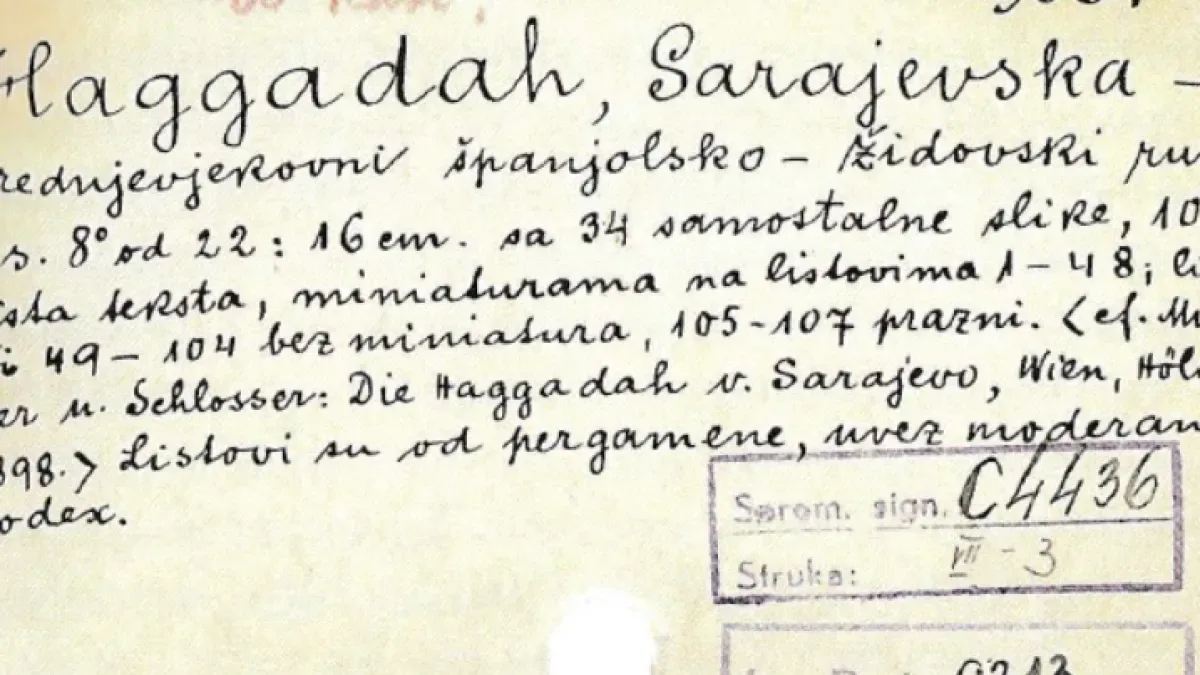 Haggadah, Sarajevska –
rednjevjekovni španjolsko – židovski ru
s. 8° od 22 : 16 cm. sa 34 samostalne slike, 10
sta teksta, miniaturama na listovima 1 – 48; li
i 49 – 104 bez miniatura, 105-107 prazni. <cf. Mü
er u. Schlosser: Die Haggadah v. Sarajevo, Wien, Höl
898.> Listovi su od pergamene, uvez moderan
odex.
Sprem. sign. C4436
Struka: VII - 3